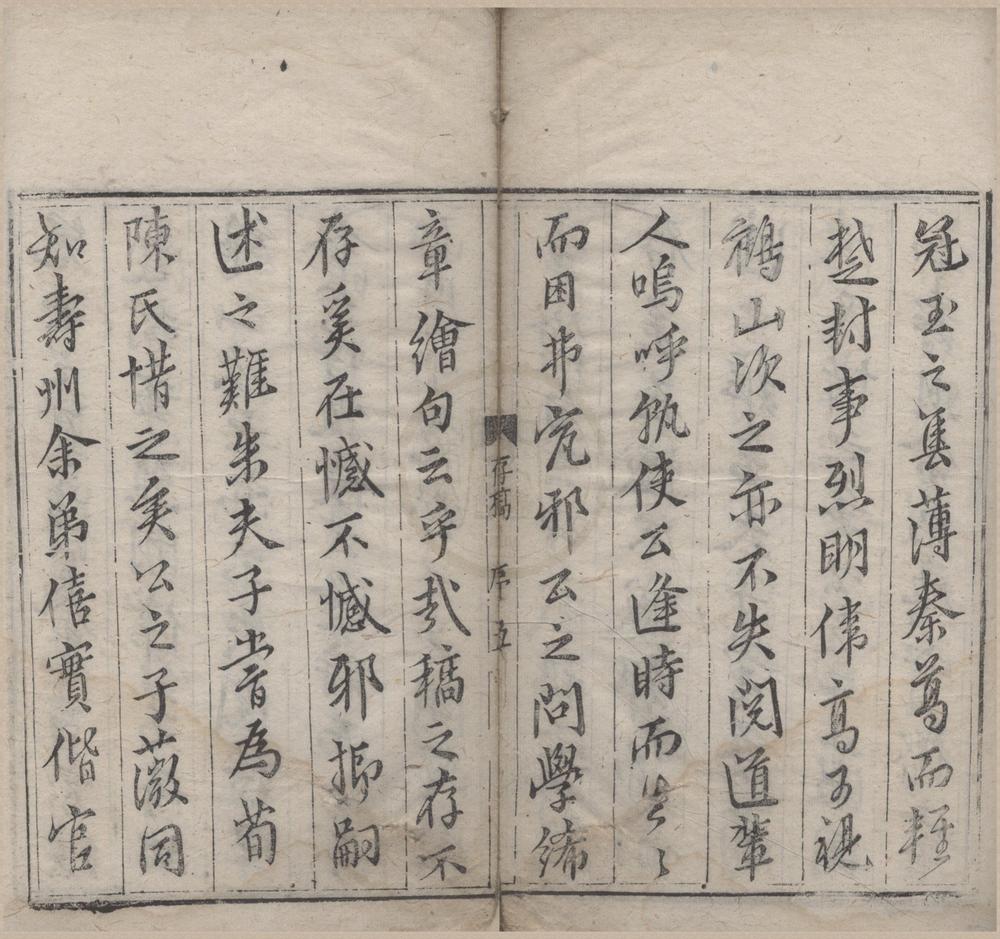 冠玉之集薄秦蒿而輕
楚封事烈明偉高可視
鶴山次之亦不失閱道輩
人嗚呼孰使公逢時而
而困弗究邪公之問學絺
存稿 序 五
章繪句云乎哉稿之存不
存奚在憾不憾邪抑嗣
述之難朱夫子嘗為荀
陳氏惜之矣公之子薇同
知壽州余弟僖實偕官